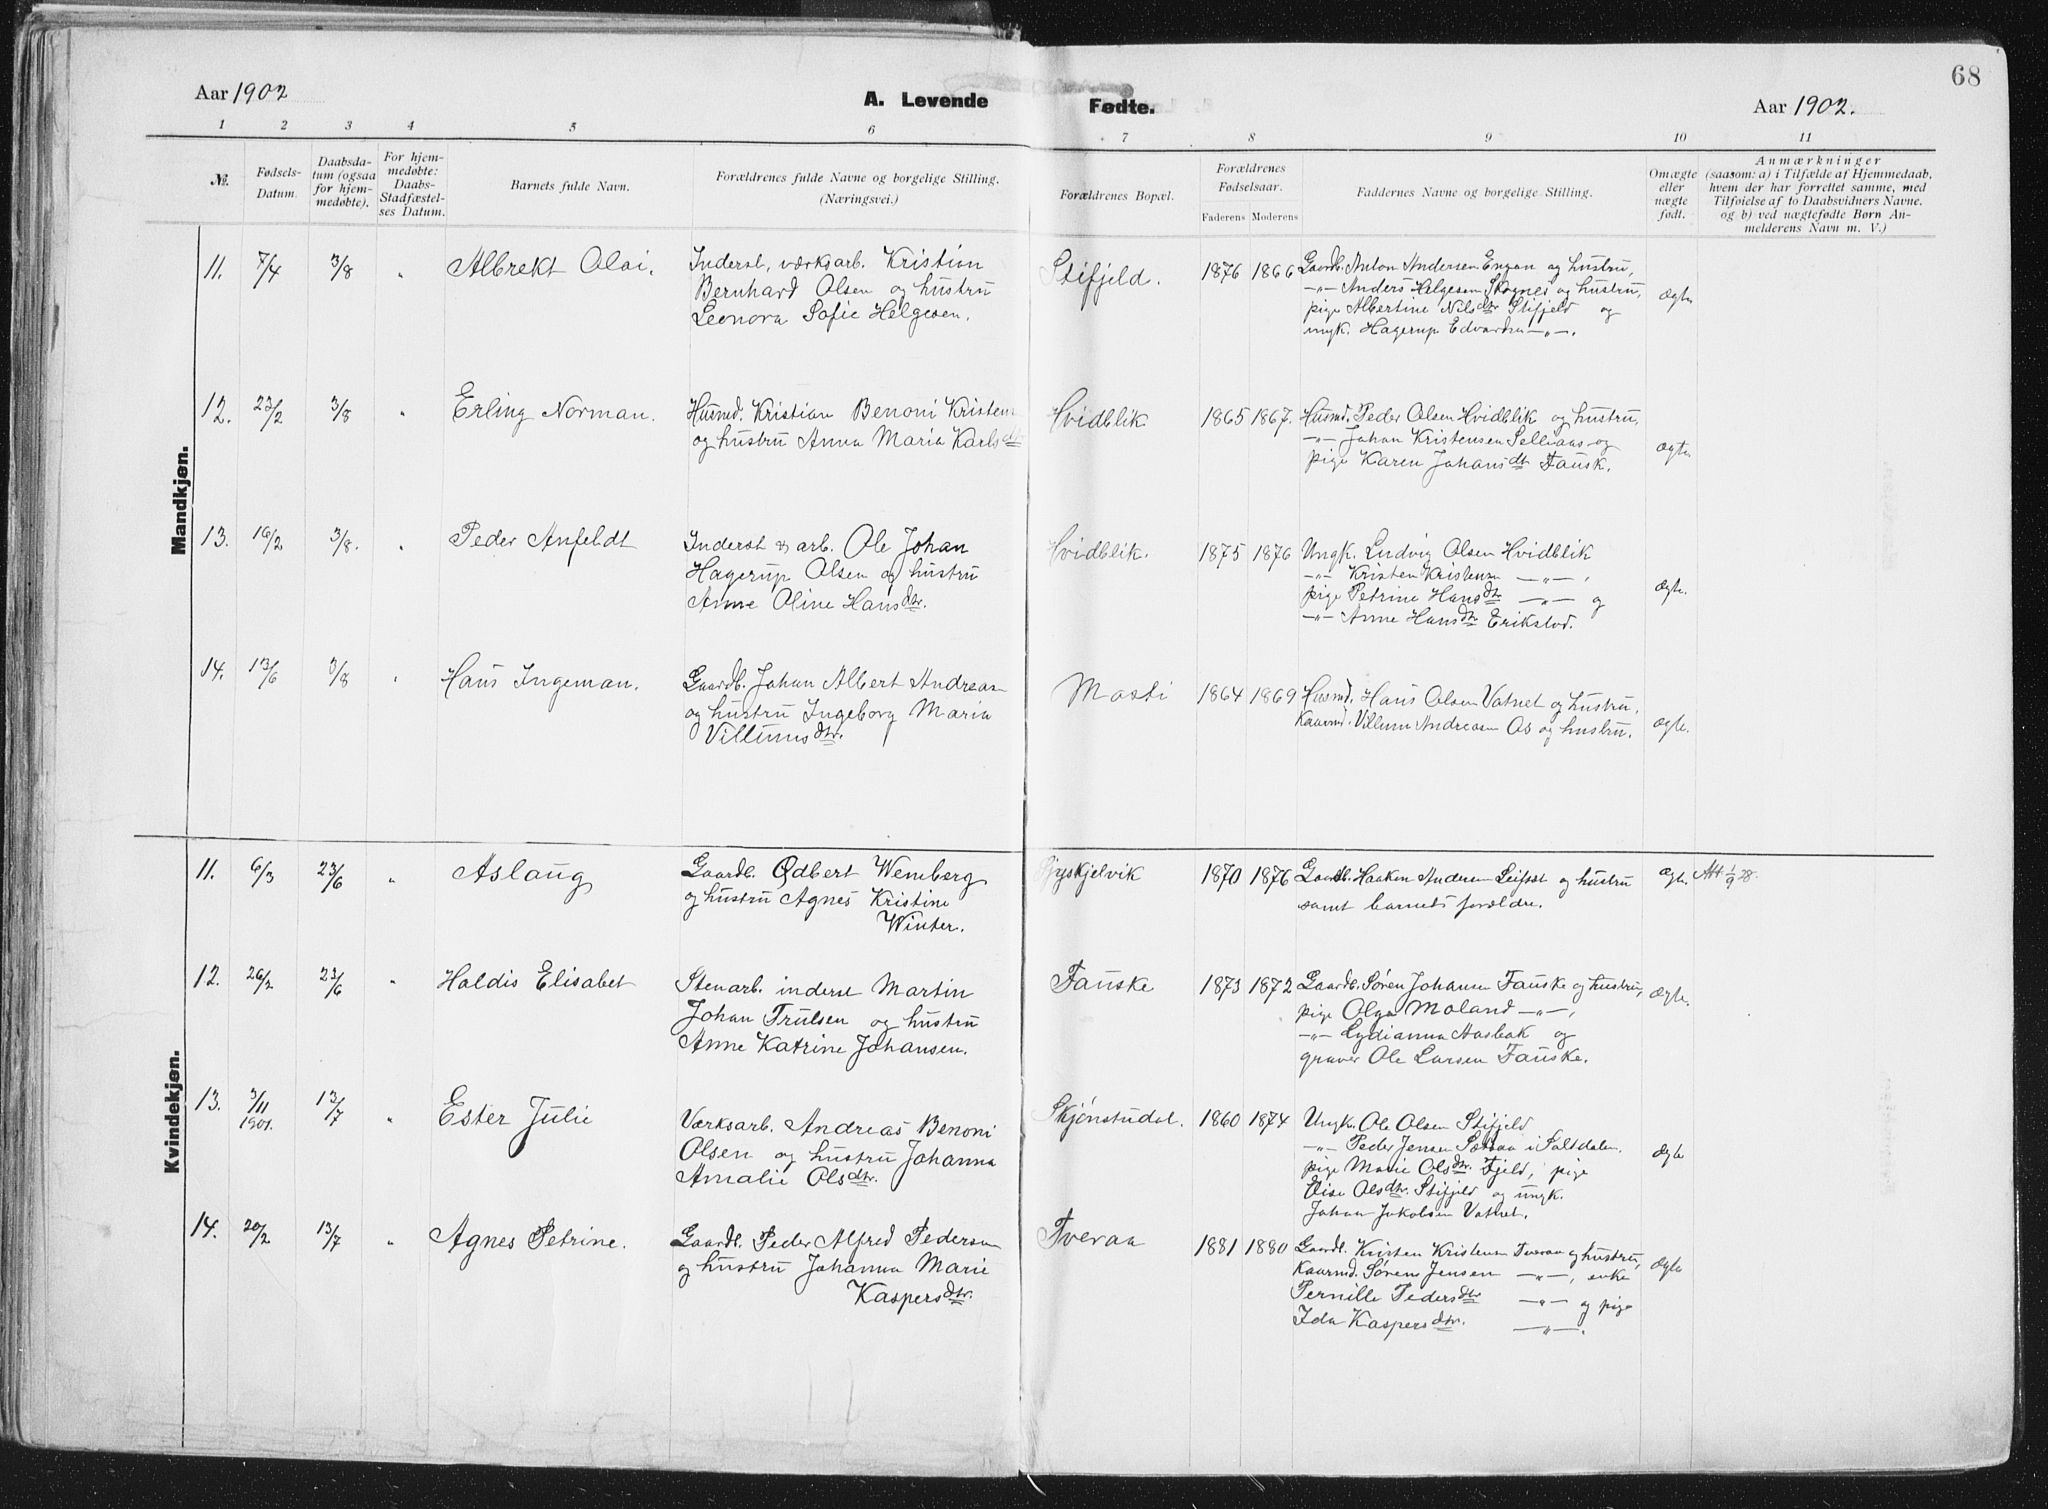 68
Aar 1902
A. Levende Fødte.
Aar 1902.
1 2 3 4 5 6 7 8 9 10 11
№. Fødsels-Datum. Daabsdatum (ogsaa for hjemmedøbte). For hjemmedøbte: Daabs-Stadfæstelses Datum. Barnets fulde Navn. Forældrenes fulde Navne og borgelige Stilling. (Næringsvei.) Forældrenes Bopæl. Forældrenes Fødselsaar. Faderens Moderens Faddernes Navne og borgelige Stilling. Omægte eller uægte født. Anmærkninger (saasom: a) i Tilfælde af Hjemmedaab, hvem der har forrettet samme, med Tilføielse af to Daabsvidners Navne. og b) ved uægtefødte Børn Anmelderens Navn m. V.)
Mandkjøn.
11. 7/4 3/8 " Albrekt Olai.
Inderst, værksarb. Kristian
Bernhard Olsen og hustru
Leonora Sofie Helgesen.
Stifjeld. 1876 1866
Gaardb. Anton Andersen Engan og hustru,
—"— Anders Helgesen Skognes og hustru,
pige Albertine Nilsdtr Stifjeld og
ungk. Hagerup Edvardsen —"—.
ægte
12. 23/2 3/8 " Erling Norman.
Husmd. Kristian Benoni Kristens
og hustru Anna Maria Karlsdtr
Hvidblik 1865 1867.
Husmd. Peder Olsen Hvidblik og hustru,
—"— Johan Kristensen Selliaas og
pige Karen Johansdt Fausk.
ægte.
13. 16/2 3/8. " Peder Anfeldt
Inderst & arb. Ole Johan
Hagerup Olsen og hustru
Anne Oline Hansdtr.
Hvidblik. 1875 1876
Ungk. Ludvig Olsen Hvidblik
—"— Kristen Kristensen —"—,
pige Petrine Hansdtr —"— og
—"— Anne Hansdtr Erikstad.
ægte.
14. 13/6 3/8 " Hans Ingeman.
Gaardb. Johan Albert Andreasen
og hustru Ingeborg Maria
Villumsdtr.
Mosti 1864 1869
Husmd. Hans Olsen Vatnet og hustru,
Kaarmd. Villum Andreasen Os og hustru.
ægte.
Kvindekjøn.
11. 6/3 23/6 " Aslaug
Gaardb. Odbert Wemberg
og hustru Agnes Kristine
Winter.
1870 1876
Gaardb. Haaken Andersen Leifset og hustru
samt barnets forældre.
ægte. Att 1/9 28.
12. 26/2 23/6 " Haldis Elisabet
Stenarb. inderst Martin
Johan Trulsen og hustru
Anne Katrine Johansen.
Fauske 1873 1872
Gaardb. Søren Johansen Fauske og hustru,
pige Olga Moland —"—,
—"— Lydianna Aasbak og
graver Ole Larsen Fauske.
ægte.
13. 3/11 1901. 13/7 " Ester Julie
Værksarb. Andreas Benoni
Olsen og hustru Johanna
Amalie Olsdtr.
Skjønstudal. 1860 1874
Ungk. Ole Olsen Stifjeld
—"— Peder Jensen i Saltdalen.
pige Marie Olsdtr. Fjeld, pige
Elise Olsdtr. Stifjeld og ungk.
Johan Jakobsen Vatnet.
ægte
14. 20/2 13/7 " Agnes Petrine.
Gaardb. Peder Alfred Pedersen
og hustru Johanna Marie
Kaspersdtr.
Tveraa 1881 1880
Gaardb. Kristen Kristensen Tveraa og hustru,
Kaarmd. Søren Jensen —"—, enke
Pernille Pedersdtr —"— og pige
Ida Kaspersdtr. —"—.
ægte